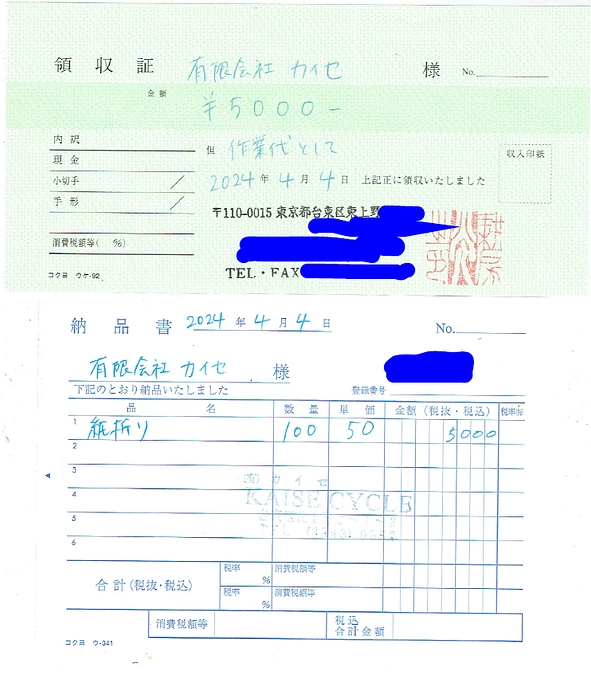 領収証 有限会社 カイセ 様 No.
金額 ¥5000-
内訳
現金
小切手
手形
消費税額等( %)
コクヨ ウケ-92
但 作業代として
2024年4月4日 上記正に領収いたしました
収入印紙
〒110-0015 東京都台東区東上野
TEL・FAX
納品書 2024年4月4日 No.
有限会社 カイセ 様
下記のとおり納品いたしました 登録番号
品名 数量 単価 金額(税抜・税込) 税率(%)
1 紙折り 100 50 5000
2
3
(有)カイセ
4
KAISE CYCLE
5
6
合計(税抜・税込) 税率 % 消費税額等
税率 % 消費税額等
消費税額等 税込合計金額
コクヨ ウ-341